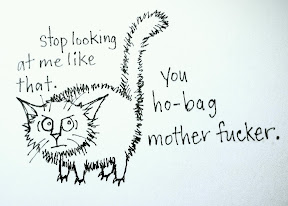 stop looking
at me like
that.
you
ho-bag
mother fucker.